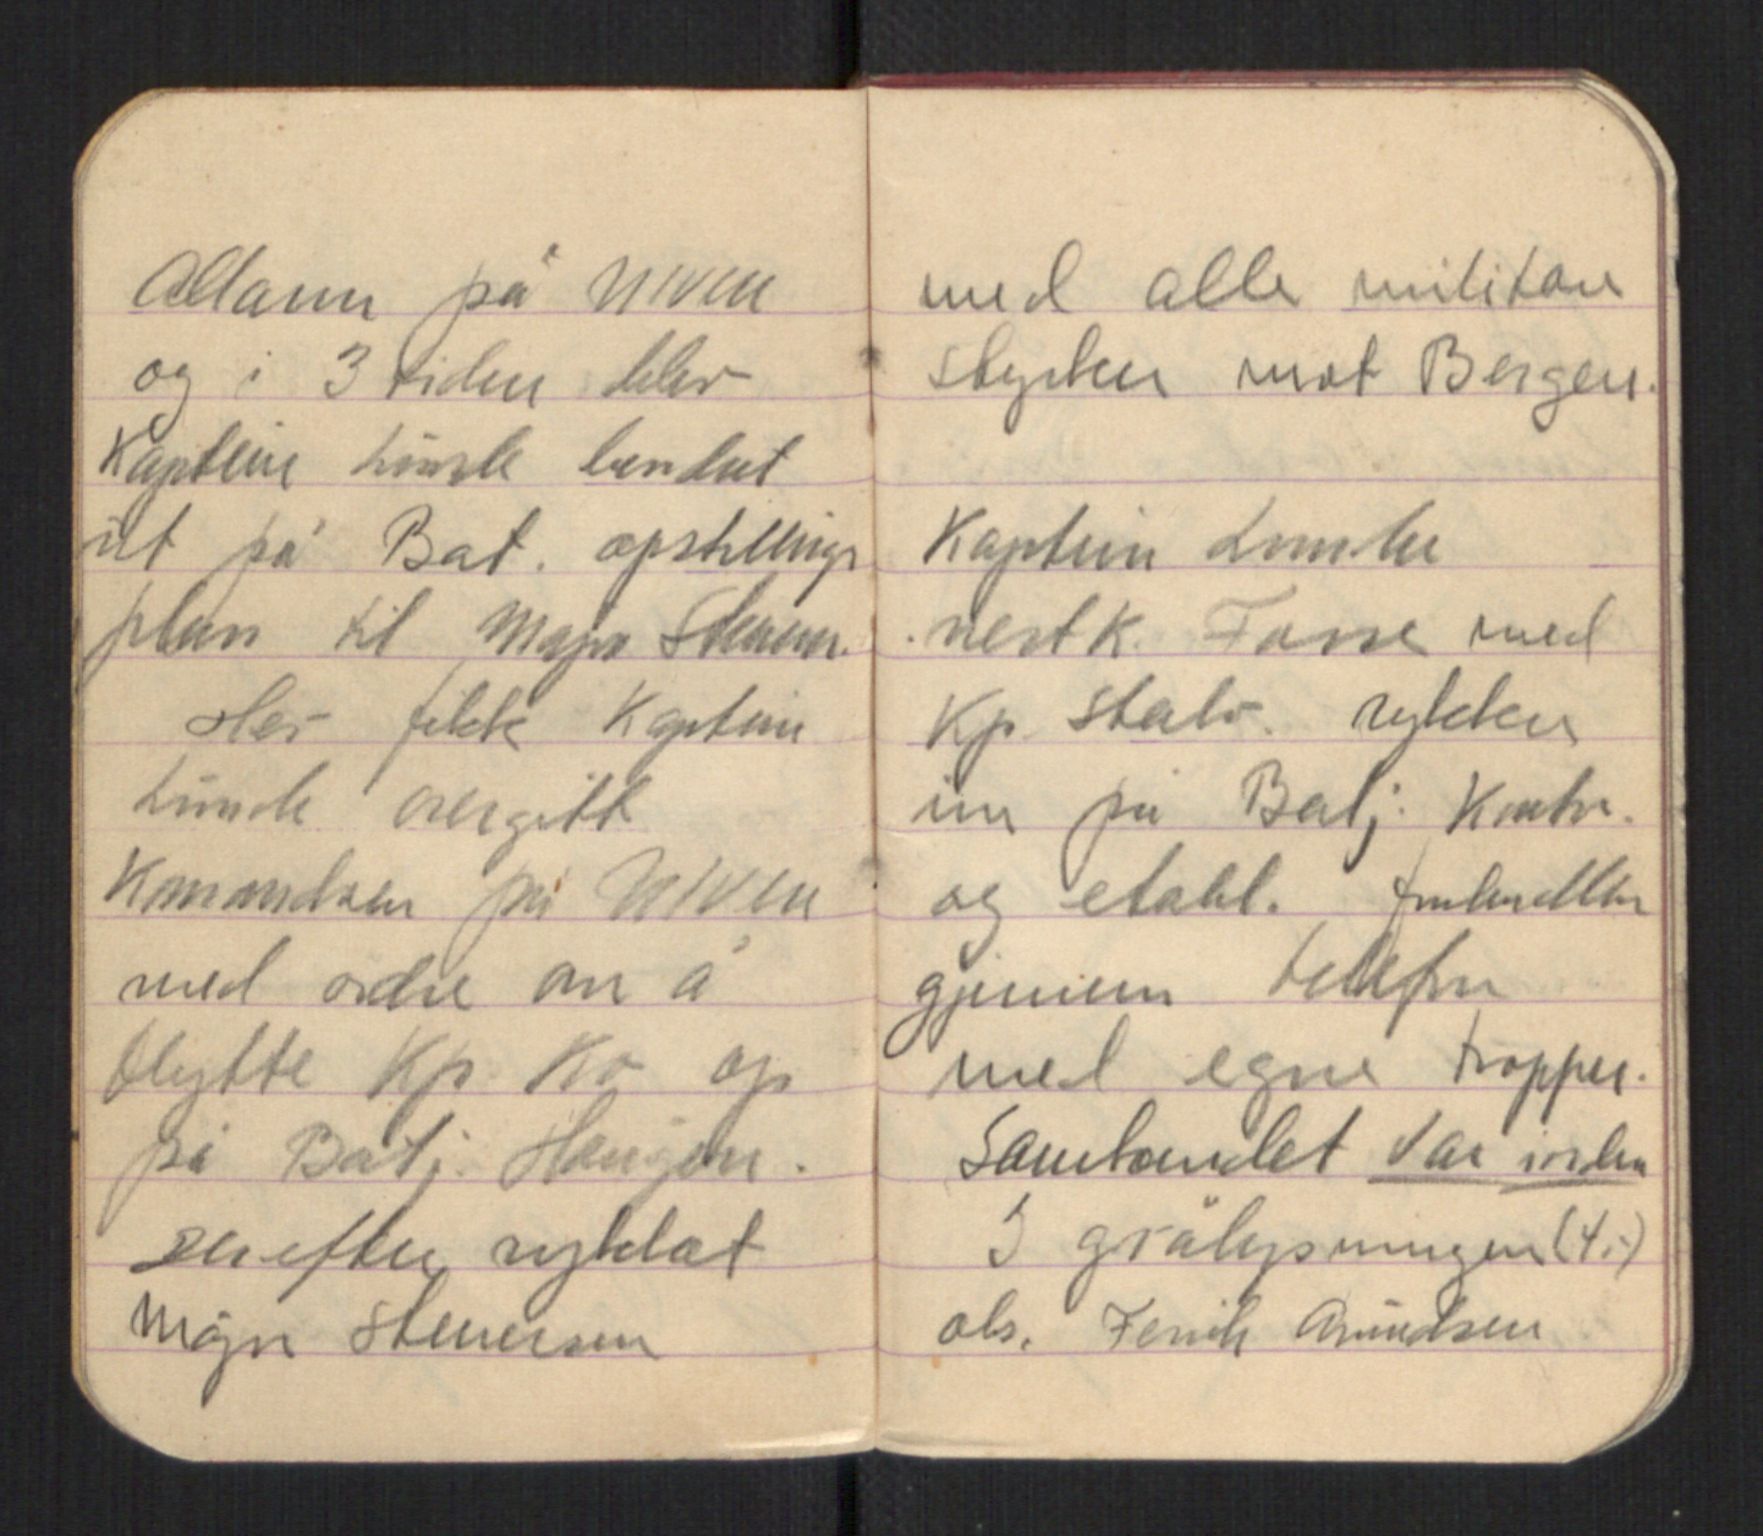 Allarm på NIVEN
og i 3 tiden blev
Kaptein Lunde beordret
ut på Bat. opstillings
plan til Major Stenersen.
Her fikk Kaptein
Lunde overgitt
Komandoen på NIVEN
med ordre om å
flytte Kp. Ko op
på Batj. Haugen.
Derefter rykket
Major Stenersen
med alle militære
styrker mot Bergen.
Kaptein Lunde
nestk. Fosse med
Kp. stab. rykker
inn på Batj. Kontor.
og etabl. forbindelse
gjennem telefon
med egne tropper.
Sambandet var i orden
I grålysningen (4.-)
obs. Fenrik Amundsen